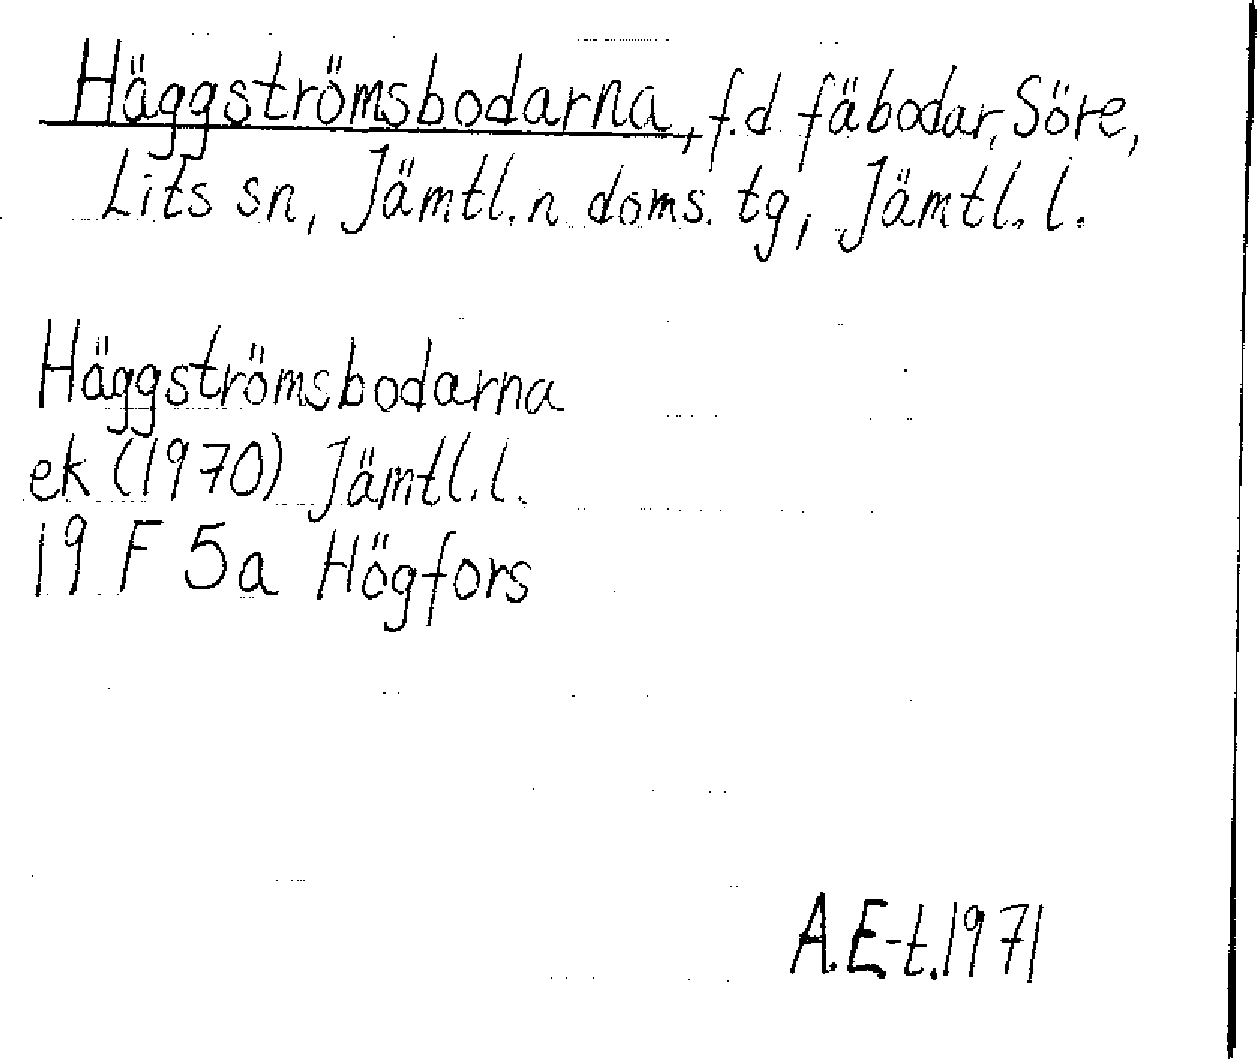 Häggströmsbodarna, f.d fäbodar, Söre,
Lits sn, Jämtl. n doms. tg, Jämtl. l.
Häggströmsbodarna
ek (1970) Jämtl. l.
19 F 5a Högfors
A.E-t. 1971